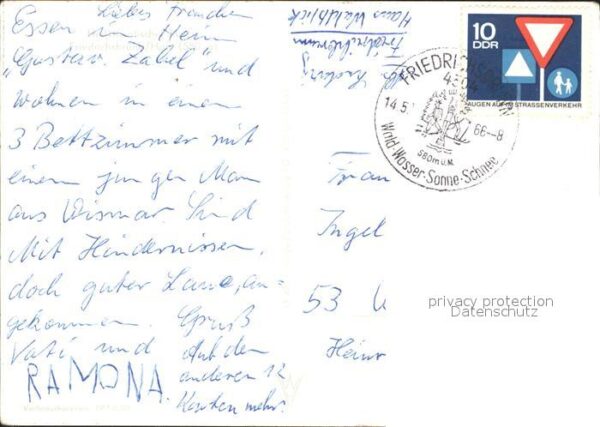 Liebes
Essen im Heim
„Gustav Zabel" und
wohnen in einem
3 Bettzimmer mit
einem jungen Mann
aus Wismar. Sind
Mit Hindernissen,
doch guter Laune, an-
gekommen. Gruß
Vati und
RAMONA
Auf den
anderen 12
Karten mehr.
Haus Waldblick
Friedrichsbrunn
10
DDR
AUGEN AUF IM STRASSENVERKEHR
FRIEDRICHSBRUNN
4304
14.5.
66-8
580m ü.M.
Wald-Wasser-Sonne-Schnee
Frau
Ingel
53
Heinr
privacy protection
Datenschutz